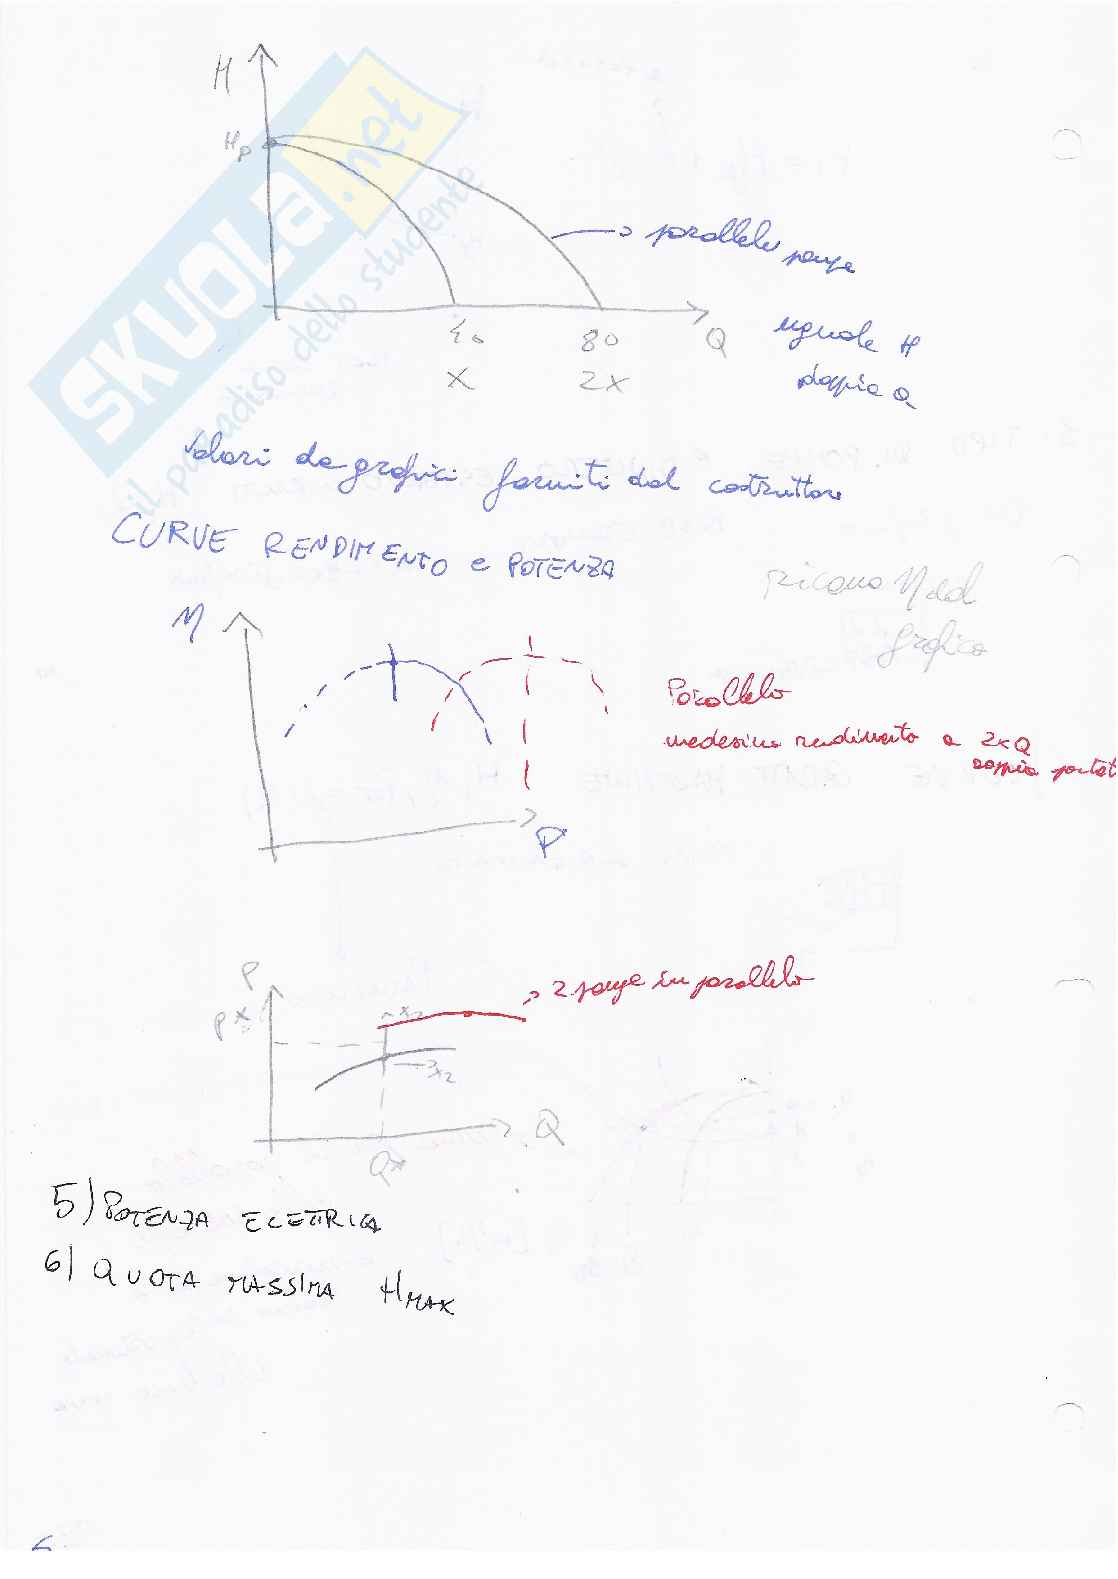 H
Hp
→ parallelo pompe
40 80 Q
X 2X
uguale H
doppia Q
Valori da grafici forniti dal costruttore
CURVE RENDIMENTO e POTENZA
ricavo η dal
grafico
η
Parallelo
medesimo rendimento a 2xQ
doppia portat
P
P
→ 2 pompe in parallelo
P*
x2
→ x2
Q
Q*
5) POTENZA ELETTRICA
6) QUOTA MASSIMA HMAX
6
SKUOLA.net
il paradiso dello studente